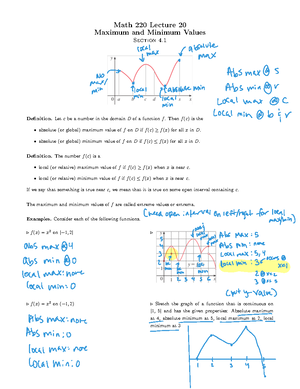 Math 220 Lecture 20
Maximum and Minimum Values
Section 4.1
local max
absolute max
No max/min
local min
absolute min
local min
Abs max @ s
Abs min @ r
Local max @ c
Local min @ b & r
Definition. Let c be a number in the domain D of a function f. Then f(c) is the
• absolute (or global) maximum value of f on D if f(c) ≥ f(x) for all x in D.
• absolute (or global) minimum value of f on D if f(c) ≤ f(x) for all x in D.
Definition. The number f(c) is a
• local (or relative) maximum value of f if f(c) ≥ f(x) when x is near c.
• local (or relative) minimum value of f if f(c) ≤ f(x) when x is near c.
If we say that something is true near c, we mean that it is true on some open interval containing c.
The maximum and minimum values of f are called extreme values or extrema.
(need open intervals on left/right for local max/min)
Examples. Consider each of the following functions.
f(x) = x² on [-1, 2]
abs max @ 4
abs min @ 0
local max: none
local min: 0
Abs max: 5
Abs min: none
Local max: 5, 4
local min: 3
(put y-value)
f(x) = x² on (-1, 2)
Abs max: none
Abs min: 0
local max: none
Local min: 0
Sketch the graph of a function that is continuous on
[1, 5] and has the given properties: Absolute maximum
at 4, absolute minimum at 5, local maximum at 2, local
minimum at 3
1 2 3 4 5